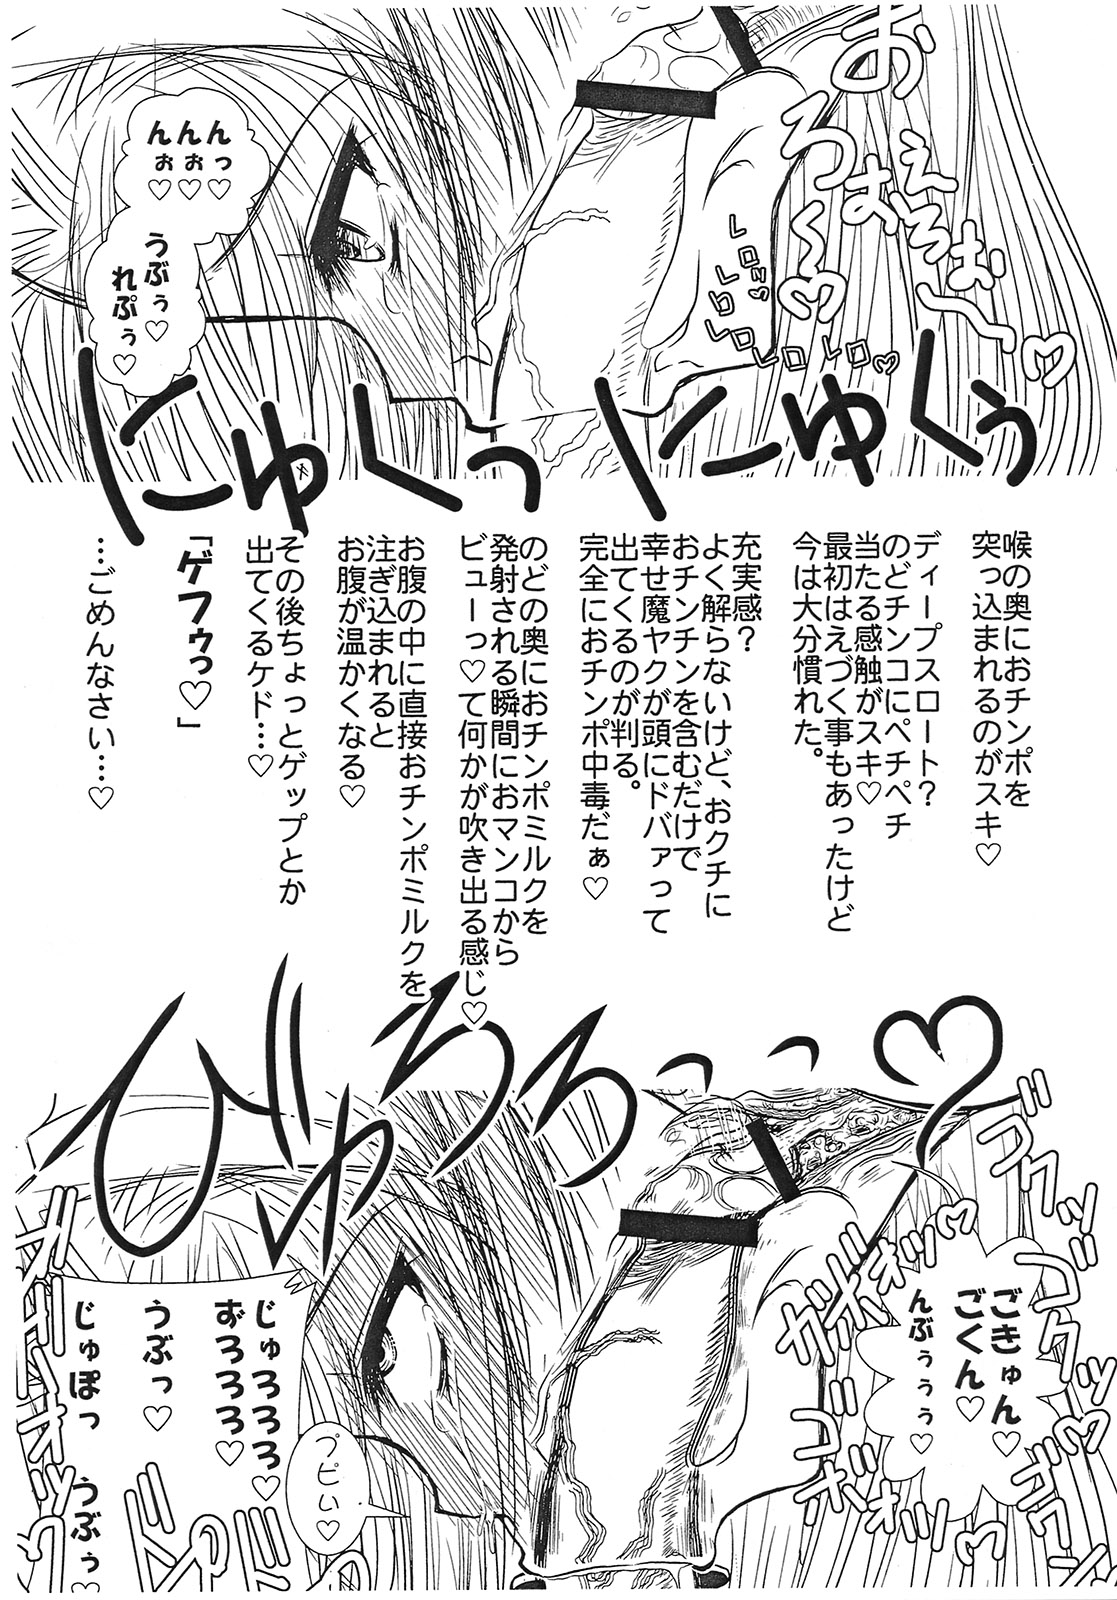 んっ♡
んぉぉ♡
んぉ♡
うぶぅ♡
れぷぅ♡
にゅくっ
にゅくぅ
喉の奥におチンポを
突っ込まれるのがスキ♡
ディープスロート?
のどチンコにペチペチ
当たる感触がスキ♡
最初はえづく事もあったけど
今は大分慣れた。
充実感?
よく解らないけど、おクチに
おチンチンを含むだけで
幸せ魔ヤクが頭にドバァって
出てくるのが判る。
完全におチンポ中毒だぁ♡
のどの奥におチンポミルクを
発射される瞬間におマンコから
ビューっ♡て何かが吹き出る感じ♡
お腹の中に直接おチンポミルクを
注ぎ込まれると
お腹が温かくなる♡
その後ちょっとゲップとか
出てくるケド…♡
「ゲフゥっ♡」
…ごめんなさい…♡
びゅろろっっ♡
ごきゅん♡
ごくん♡
んぶぅぅぅ♡
じゅろろろ♡
おろろろ♡
うぶっ♡
じゅぽっ
うぶぅ♡
プピぃ♡